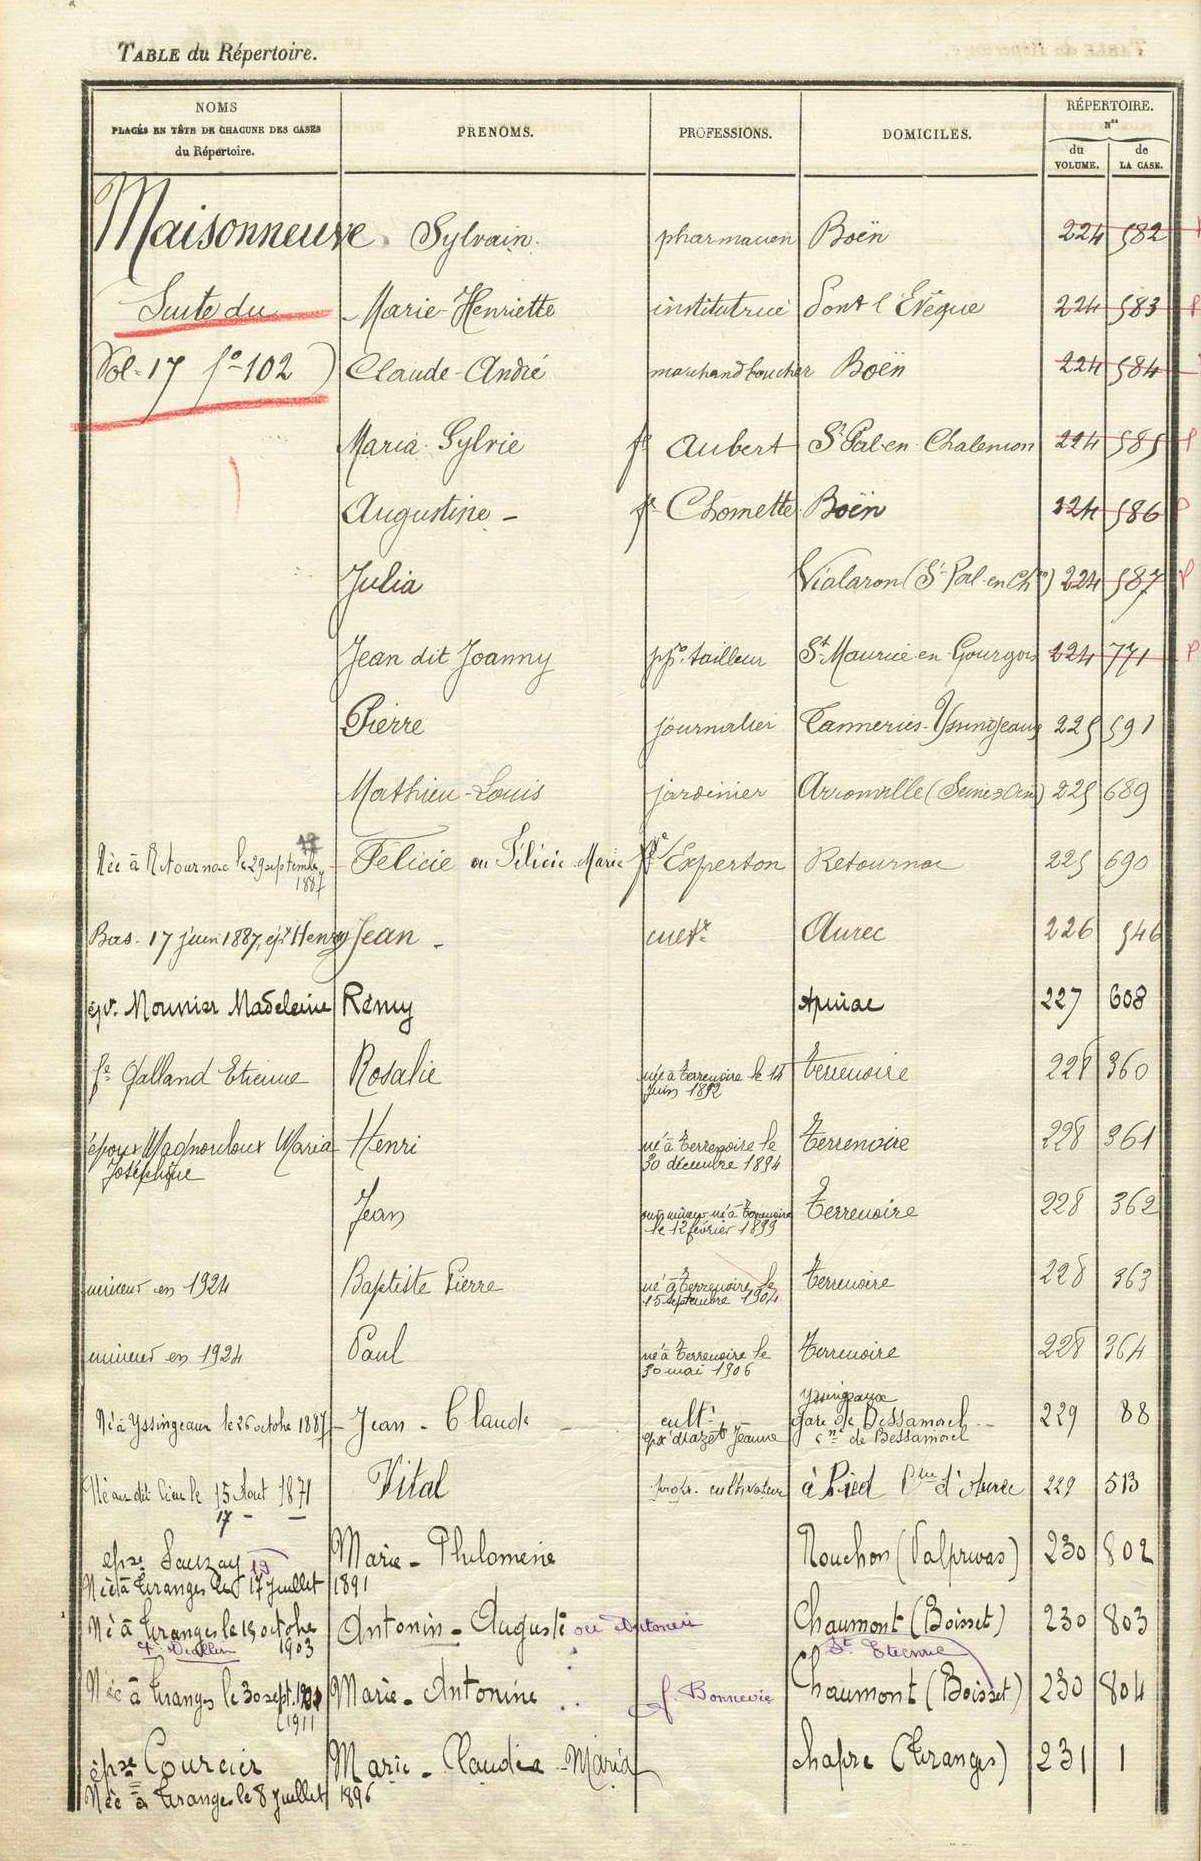 TABLE du Répertoire.
NOMS
PLACÉS EN TÊTE DE CHACUNE DES CASES
du Répertoire.
PRENOMS.
PROFESSIONS.
DOMICILES.
RÉPERTOIRE.
Nos
du
VOLUME.
de
LA CASE.
Maisonneuve Sylvain pharmacien Boën 224 582
Suite du Marie-Henriette institutrice Pont l'Evêque 224 583
Vol. 17 fo 102) Claude-André marchand boucher Boën 224 584
Maria-Sylvie fe Aubert St Pal-en-Chalencon 224 585
Augustine - fe Chomette Boën 224 586
Julia Vialaron (St-Pal-en-Chon) 224 587
Jean dit Joanny ppre tailleur St Maurice en Gourgois 224 771
Pierre journalier Tanneries-Yssingeaux 225 591
Mathieu-Louis jardinier Arronville (Seine & Oise) 225 689
Née à Retournac le 29 septembre 1887 Félicie ou Félicie Marie fe Experton Retournac 225 690
Bas. 17 juin 1887, épx Henry Jean - cultr Aurec 226 546
épx Mounier Madeleine Rémy Apinac 227 608
fe Galland Etienne Rosalie née à Terrenoire le 14 Terrenoire 228 360
juin 1892
époux Magnouloux Maria Henri né à Terrenoire le Terrenoire 228 361
Joséphine 30 décembre 1894
Jean mineur né à Terrenoire Terrenoire 228 362
le 12 février 1899
mineur en 1924 Baptiste Pierre né à Terrenoire le Terrenoire 228 363
15 septembre 1904
mineur en 1924 Paul né à Terrenoire le Terrenoire 228 364
30 mai 1906
Yssingeaux
Né à Yssingeaux le 26 octobre 1887 - Jean - Claude cultr gare de Bessamorel 229 88
Jeanne cne de Bessamorel
Né au dit lieu le 15 Aout 1871 Vital propr. cultivateur à Pied Cne d'Aurec 229 513
17 -
epse Sauzay Marie - Philomène Rouchon (Valprivas) 230 802
Née à Tiranges le 17 juillet 1891
Né à Tiranges le 19 octobre Antonin - Auguste ou Antonin Chaumont (Boisset) 230 803
1903
St Etienne
Née à Tiranges le 30 sept. Marie - Antonine f. Bonnevie Chaumont (Boisset) 230 804
1911
épse Courcier Marie - Claudia - Maria Chapre (Tiranges) 231 1
Née à Tiranges le 8 juillet 1896